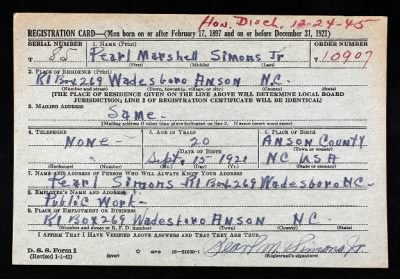 Hon. Disch. 12-24-45
REGISTRATION CARD—(Men born on or after February 17, 1897 and on or before December 31, 1921)
SERIAL NUMBER 1. NAME (Print) ORDER NUMBER
T 85 Pearl Marshell Simons Jr 10907
(First) (Middle) (Last)
2. PLACE OF RESIDENCE (Print)
R1 Box 269 Wadesboro Anson N.C.
(Number and street) (Town, township, village, or city) (County) (State)
[THE PLACE OF RESIDENCE GIVEN ON THE LINE ABOVE WILL DETERMINE LOCAL BOARD
JURISDICTION; LINE 2 OF REGISTRATION CERTIFICATE WILL BE IDENTICAL]
3. MAILING ADDRESS
Same.
[Mailing address if other than place indicated on line 2. If same insert word same]
4. TELEPHONE 5. AGE IN YEARS 6. PLACE OF BIRTH
None 20 Anson County
DATE OF BIRTH (Town or county)
Sept. 15 1921 NC USA
(Exchange) (Number) (Mo.) (Day) (Yr.) (State or country)
7. NAME AND ADDRESS OF PERSON WHO WILL ALWAYS KNOW YOUR ADDRESS
Pearl Simons R1 Box 269 Wadesboro NC
8. EMPLOYER'S NAME AND ADDRESS
Public Work
9. PLACE OF EMPLOYMENT OR BUSINESS
R1 Box 269 Wadesboro Anson N.C.
(Number and street or R. F. D. number) (Town) (County) (State)
I AFFIRM THAT I HAVE VERIFIED ABOVE ANSWERS AND THAT THEY ARE TRUE.
D. S. S. Form 1
(Revised 1-1-42) (over) Pearl M Simons Jr.
(Registrant's signature)